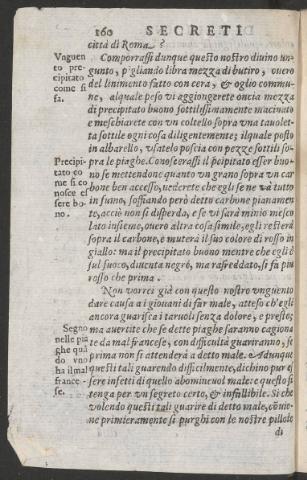 160 SECRETI
città di Roma.?
Vnguento precipitato come si fa.
Comporrassi dunque questo nostro diuino un-
gunto, pigliando libra mezza di butiro, ouero
del linimento fatto con cera, & oglio commu-
ne, alquale peso vi aggiongerete oncia mezza
di precipitato buono sottilissimamente macinato
e meschiarete con vn coltello sopra vna tauolet-
ta sottile ogni cosa diligentemente; ilquale posto
in albarello, vsatelo poscia con pezze sottili so-
pra le piaghe. Conoscerassi il pcipitato esser buo-
Precipitato come si conosce essere bono.
no se mettendone quanto vn grano sopra vn car
bone ben accesso, uederete che egli se ne và tutto
in fumo, soffiando però detto carbone pianamen
te, acciò non si disperda, e se vi sarà minio mesco
lato insieme, ouero altra cosa simile, egli resterà
sopra il carbone, e muterà il suo colore di rosso in
giallo: ma il precipitato buono mentre che egli è
sul fuoco, diuenta negro, ma rafreedato, si fa più
rosso che prima.
Non vorrei già con questo nostro vnguento
dare causa a i giouani di far male, atteso ch'egli
ancora guarisca i taruoli senza dolore, e presto;
Segno nelle piaghe quãdo vno ha il mal francese.
ma auertite che se dette piaghe saranno cagiona
te da mal francese, con difficultà guariranno, se
prima non si attenderà a detto male. Adunque
questi tali guarendo difficilmente, dichino pur es
sere infetti di quello abomineuol male: e questo si
tenga per vn segreto certo, & infallibile. Si che
volendo questi tali guarire di detto male, cõuie-
ne primieramente si purghi con le nostre pillole
di